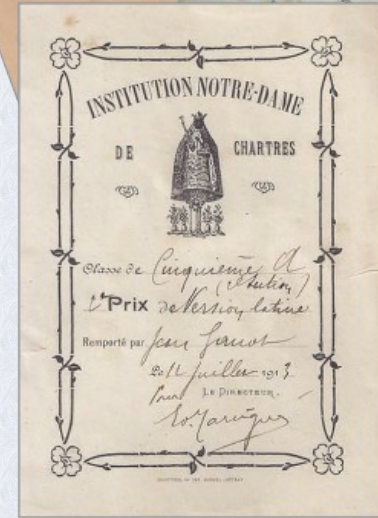 INSTITUTION NOTRE-DAME
DE CHARTRES
Classe de Cinquième A
2e Prix de Version latine
Remporté par Jean
Le 12 Juillet 1913
Pour LE DIRECTEUR,